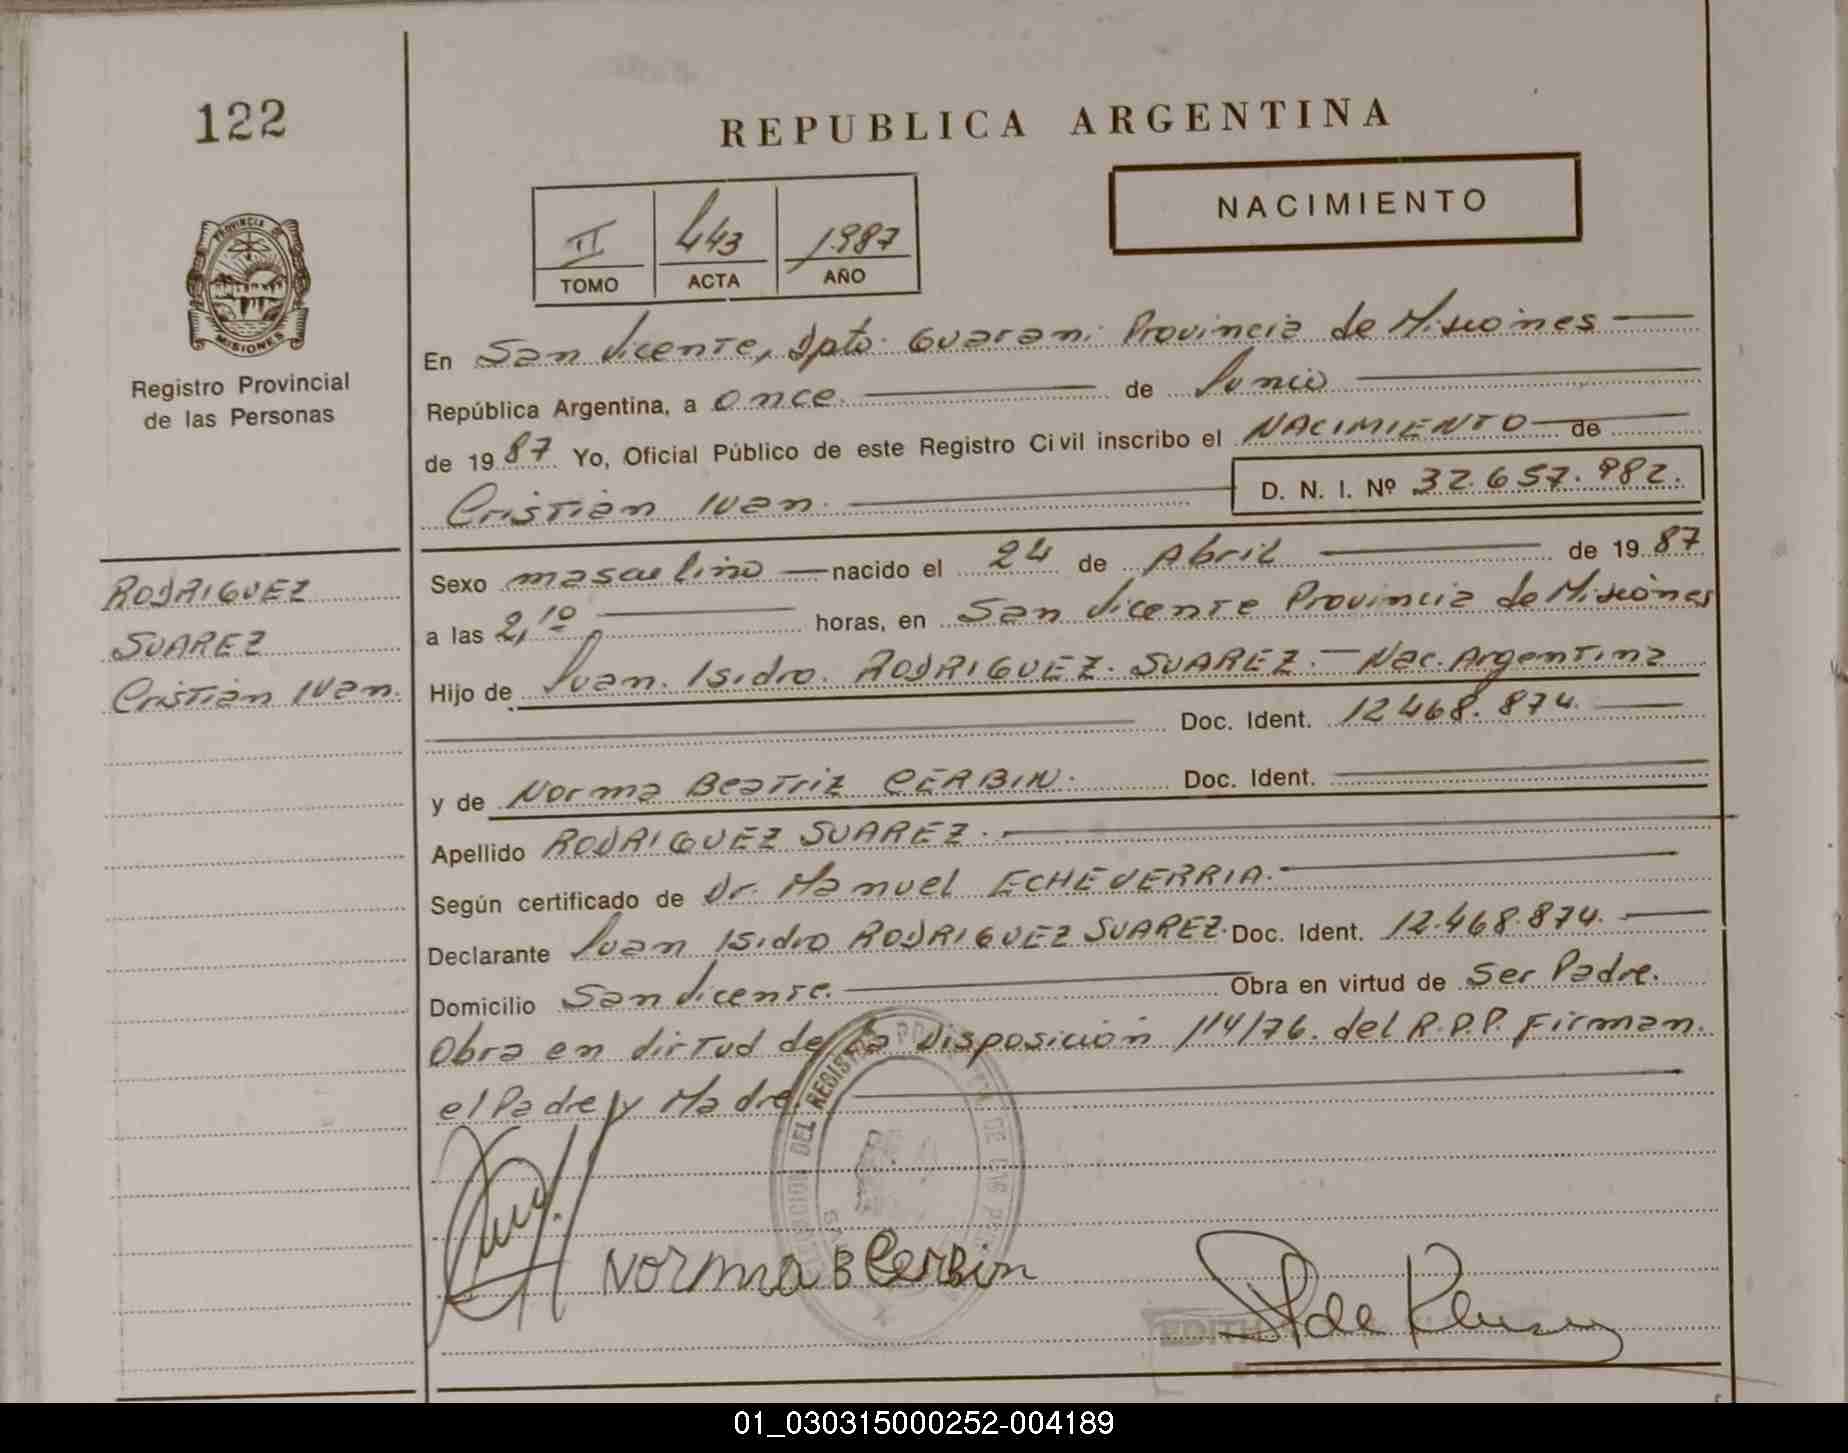 122
REPUBLICA ARGENTINA
NACIMIENTO
II 443 1987
TOMO ACTA AÑO
PROVINCIA DE
MISIONES
Registro Provincial
de las Personas
En San Vicente, Dpto. Guarani Provincia de Misiones
República Argentina, a once de Junio
de 1987 Yo, Oficial Público de este Registro Civil inscribo el NACIMIENTO de
Cristian Ivan. D. N. I. Nº 32.657.982.
RODRIGUEZ
SUAREZ
Cristian Ivan.
Sexo masculino nacido el 24 de Abril de 1987
a las 2,10 horas, en San Vicente Provincia de Misiones
Hijo de Juan Isidro RODRIGUEZ SUAREZ.- Nac. Argentina
Doc. Ident. 12.468.874.
y de Norma Beatriz CERBIN. Doc. Ident.
Apellido RODRIGUEZ SUAREZ.
Según certificado de Dr. Manuel ECHEVERRIA.
Declarante Juan Isidro RODRIGUEZ SUAREZ. Doc. Ident. 12.468.874.
Domicilio San Vicente. Obra en virtud de Ser Padre.
Obra en virtud de la Disposición 114/76. del R.P.P. Firman.
el Padre y Madre.
Norma B Cerbin
EDITH
01_030315000252-004189